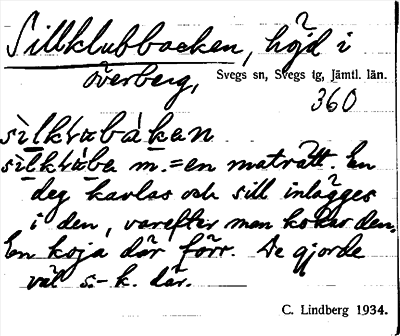 Sillklubbacken, höjd i
överberg, Svegs sn, Svegs tg, Jämtl. län.
360
m. = en maträtt. En
deg kavlas och sill inlägges
i den, varefter man kokar den.
En koja där förr. De gjorde
väl s.-k. där.
C. Lindberg 1934.